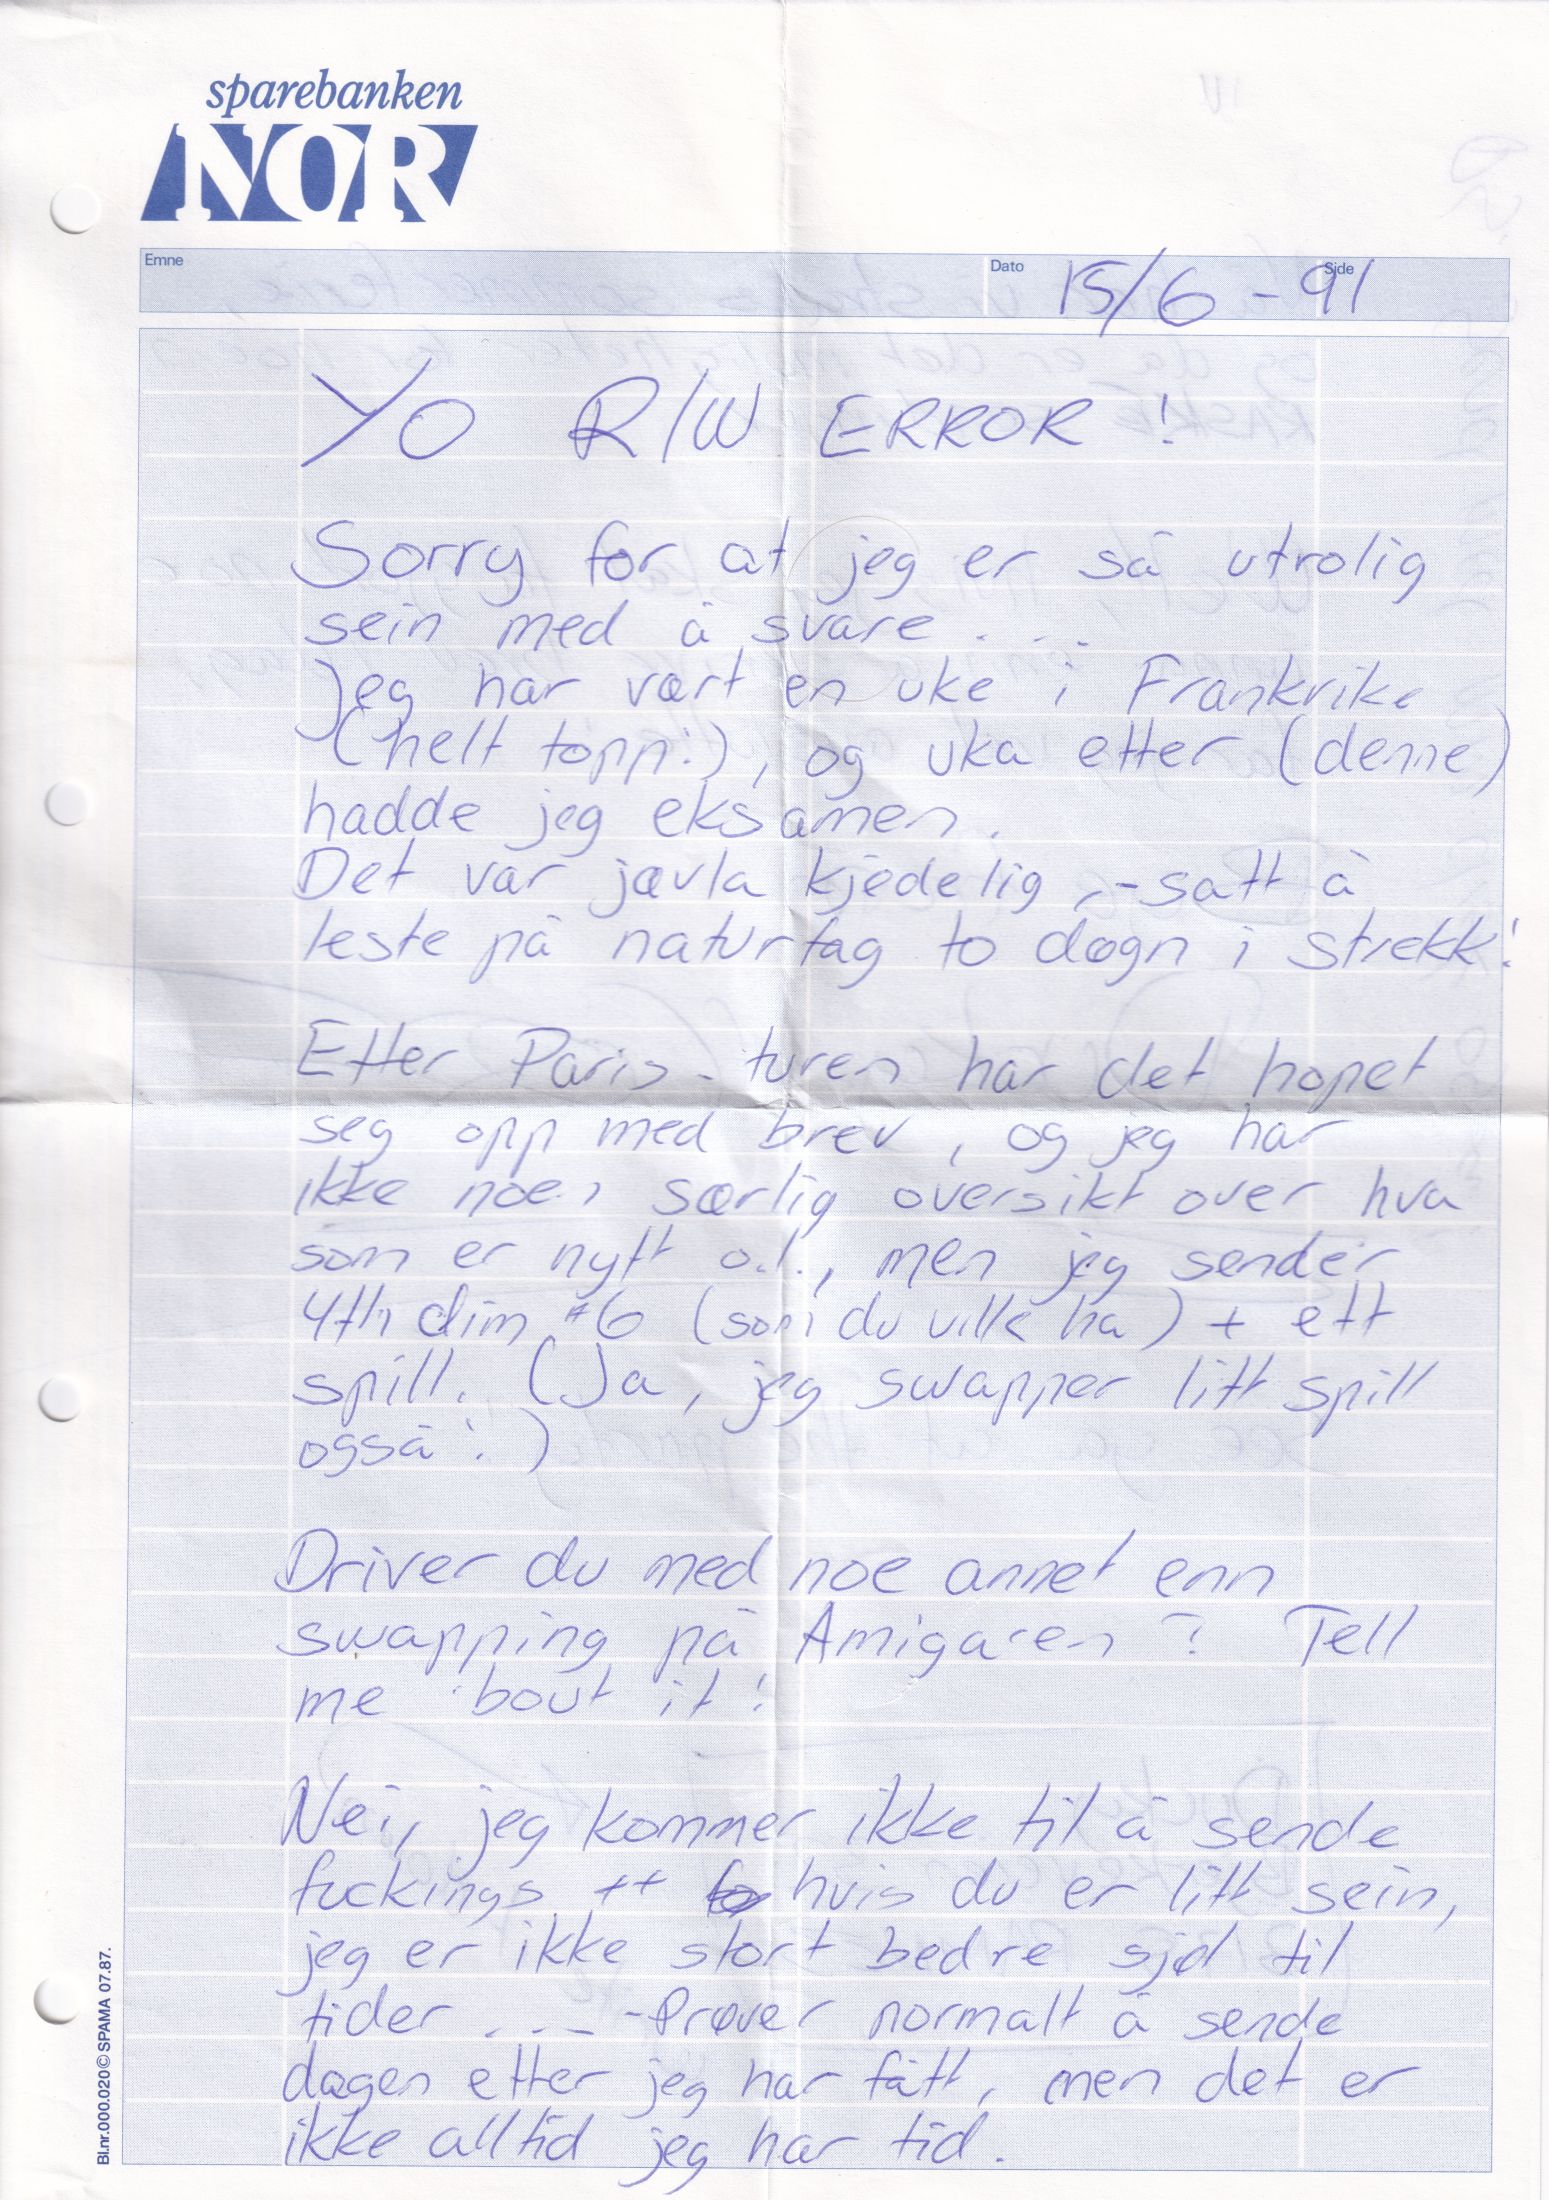 sparebanken
NOR
Emne
Dato
Side
15/6 - 91
YO R/W ERROR!
Sorry for at jeg er så utrolig
sein med å svare . . .
Jeg har vært en uke i Frankrike
(helt topp!), og uka etter (denne)
hadde jeg eksamen.
Det var jævla kjedelig, - satt å
leste på naturfag to døgn i strekk!
Etter Paris-turen har det hopet
seg opp med brev, og jeg har
ikke noen særlig oversikt over hva
som er nytt o.l., men jeg sender
4th dim #6 (som du ville ha) + ett
spill. (Ja, jeg swapper litt spill
også!)
Driver du med noe annet enn
swapping på Amiga'en? Tell
me 'bout it!
Nei, jeg kommer ikke til å sende
fuckings ++ hvis du er litt sein,
jeg er ikke stort bedre sjøl til
tider ... - Prøver normalt å sende
dagen etter jeg har fått, men det er
ikke alltid jeg har tid.
Bl.nr.000.020 © SPAMA 07.87.